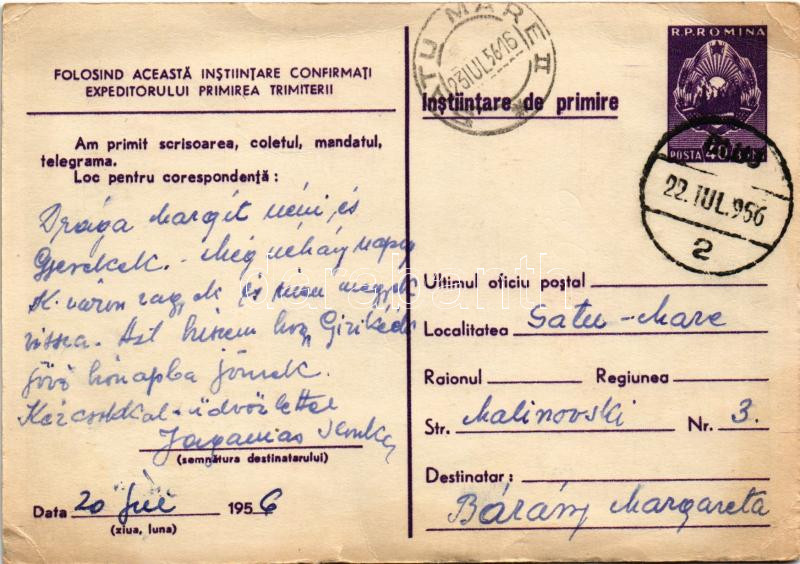 FOLOSIND ACEASTĂ INȘTIINȚARE CONFIRMAȚI
EXPEDITORULUI PRIMIREA TRIMITERII
Am primit scrisoarea, coletul, mandatul,
telegrama.
Loc pentru corespondență :
Drága Margit néni, és
Gyerekek. - Még néhány napig
K.váron vagyok és
vissza. Azt hiszem hogy
jövő hónapba jönnek.
Kézcsókkal - üdvözlettel
(semnătura destinatarului)
Data 20 Jul 1956
(ziua, luna)
SATU MARE II
23 IUL 56 16
R.P. ROMINA
POSTA 40
Inștiințare de primire
22. IUL. 956
2
Ultimul oficiu poștal
Localitatea Satu-Mare
Raionul Regiunea
Str. Malinovski Nr. 3.
Destinatar :
Bárány Margareta
darabanth